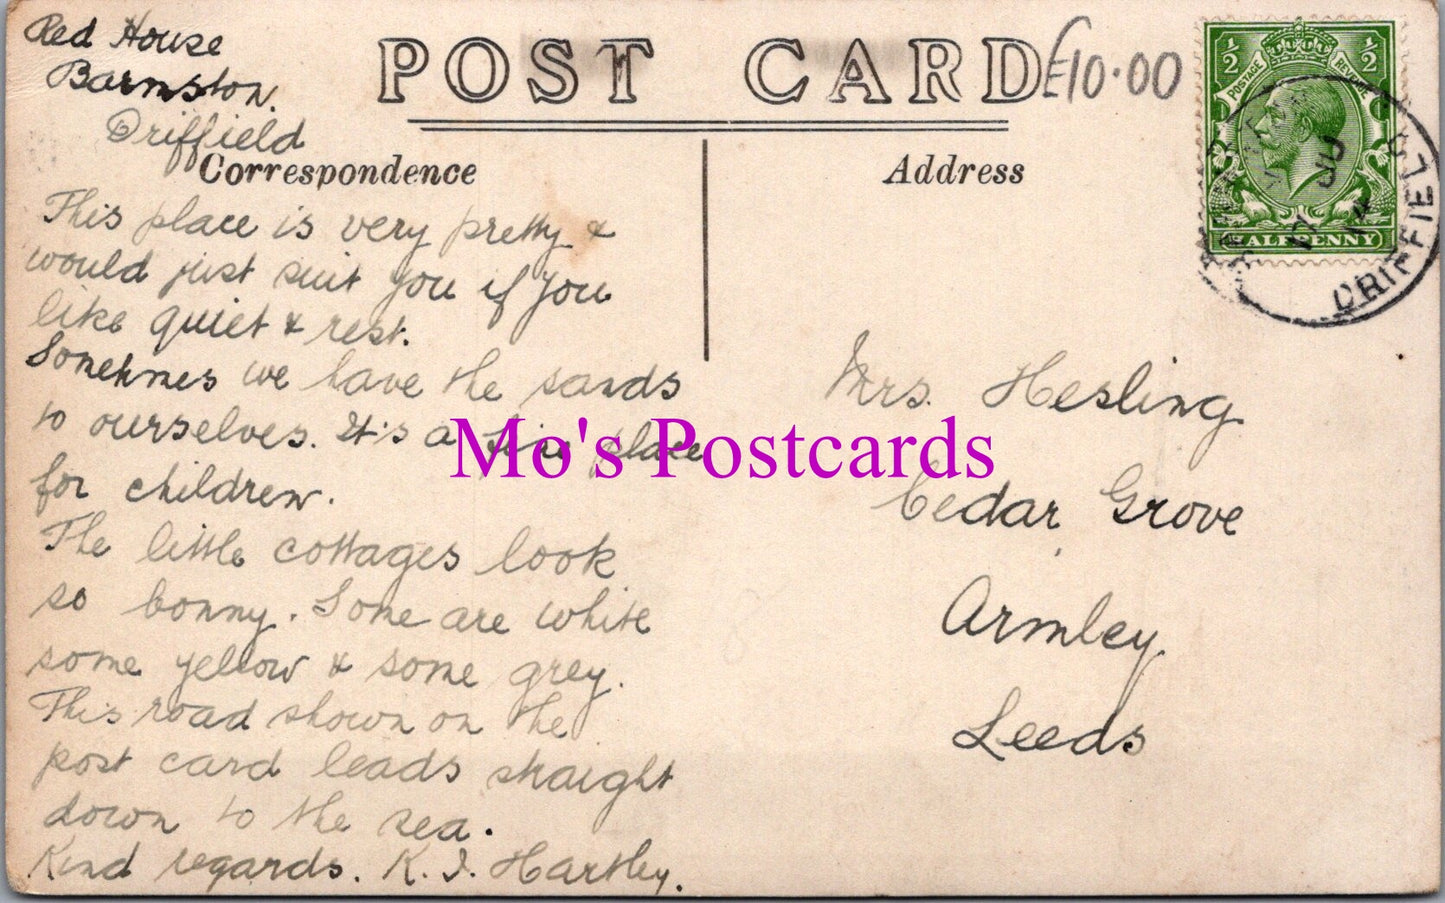 Red House
Barmston.
Driffield
POST CARD
£10.00
Correspondence
Address
This place is very pretty &
would just suit you if you
like quiet & rest.
Sometimes we have the sands
to ourselves. It's a fine place
for children.
The little cottages look
so bonny. Some are white
some yellow & some grey.
This road shown on the
post card leads straight
down to the sea.
Kind regards. K. I. Hartley.
Mrs. Hesling
Cedar Grove
Armley
Leeds
½ ½
POSTAGE REVENUE
HALFPENNY
JU
14
DRIFFIELD
Mo's Postcards